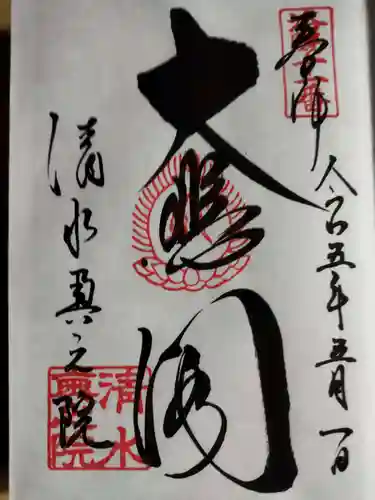 奉拝
令和五年五月一日
大悲閣
清水奥之院
清水
奥院